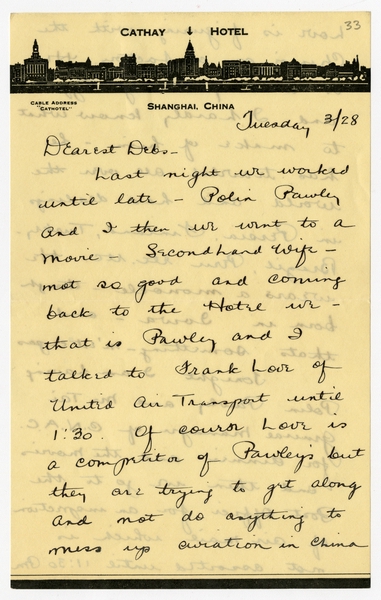 33
CATHAY HOTEL
CABLE ADDRESS
"CATHOTEL"
SHANGHAI, CHINA
Tuesday 3/28
Dearest Debs-
Last night we worked
until late - Polin Pawley
and I then we went to a
movie - Secondhand Wife -
not so good and coming
back to the Hotel we -
that is Pawley and I
talked to Frank Love of
United Air Transport until
1:30. Of course Love is
a competitor of Pawley's but
they are trying to get along
and not do anything to
mess up aviation in China